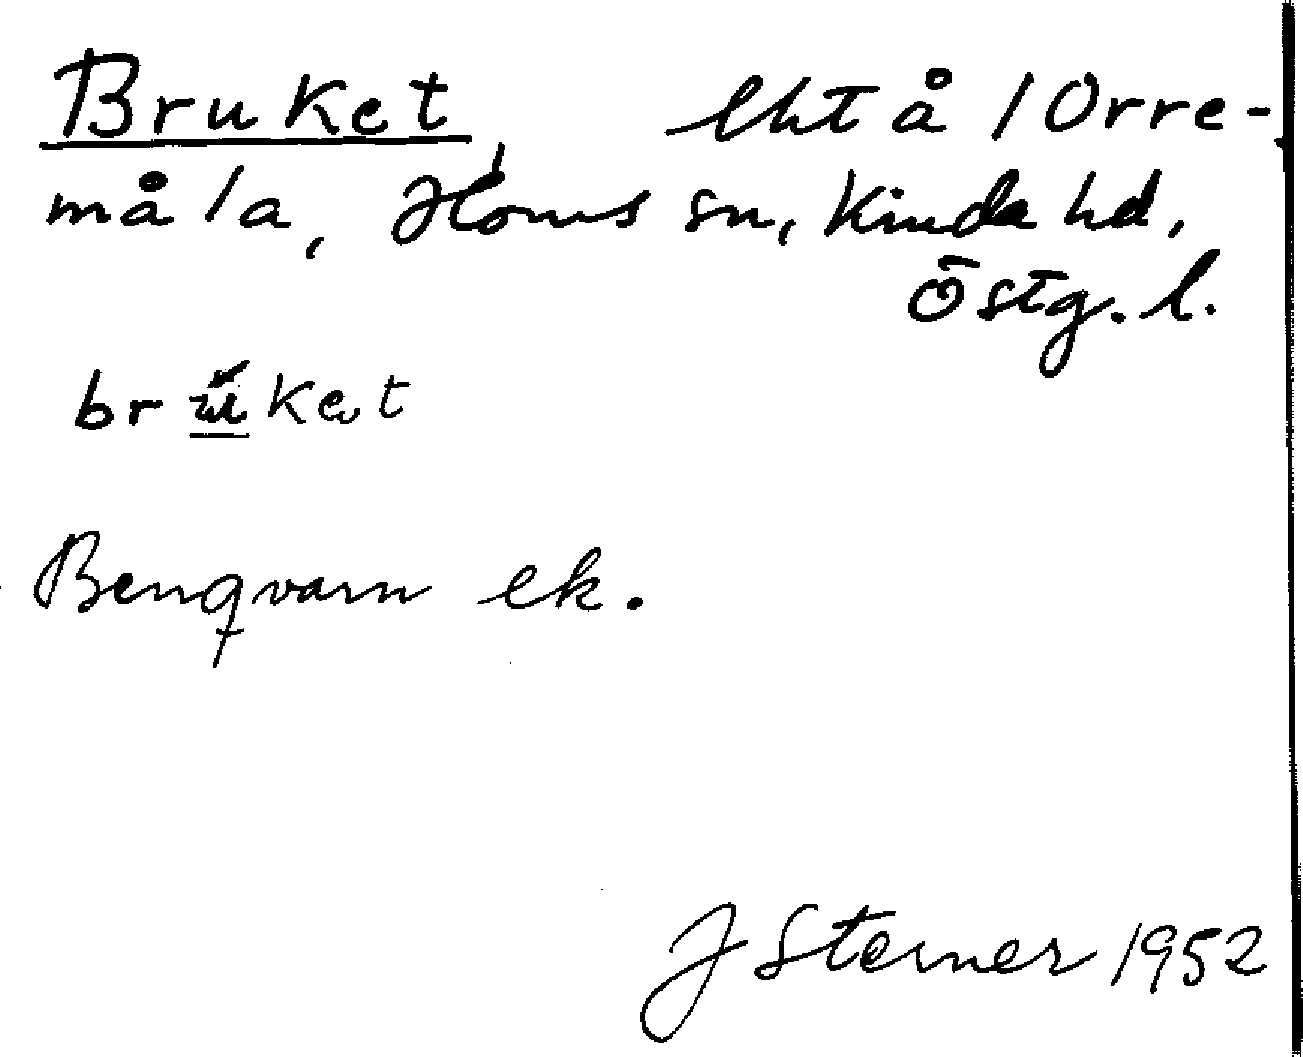 Bruket, lht å 1 Orre-
måla, Horns sn, Kinda hd,
Östg. l.
brùkət
Benqvarn ek.
J Sterner 1952